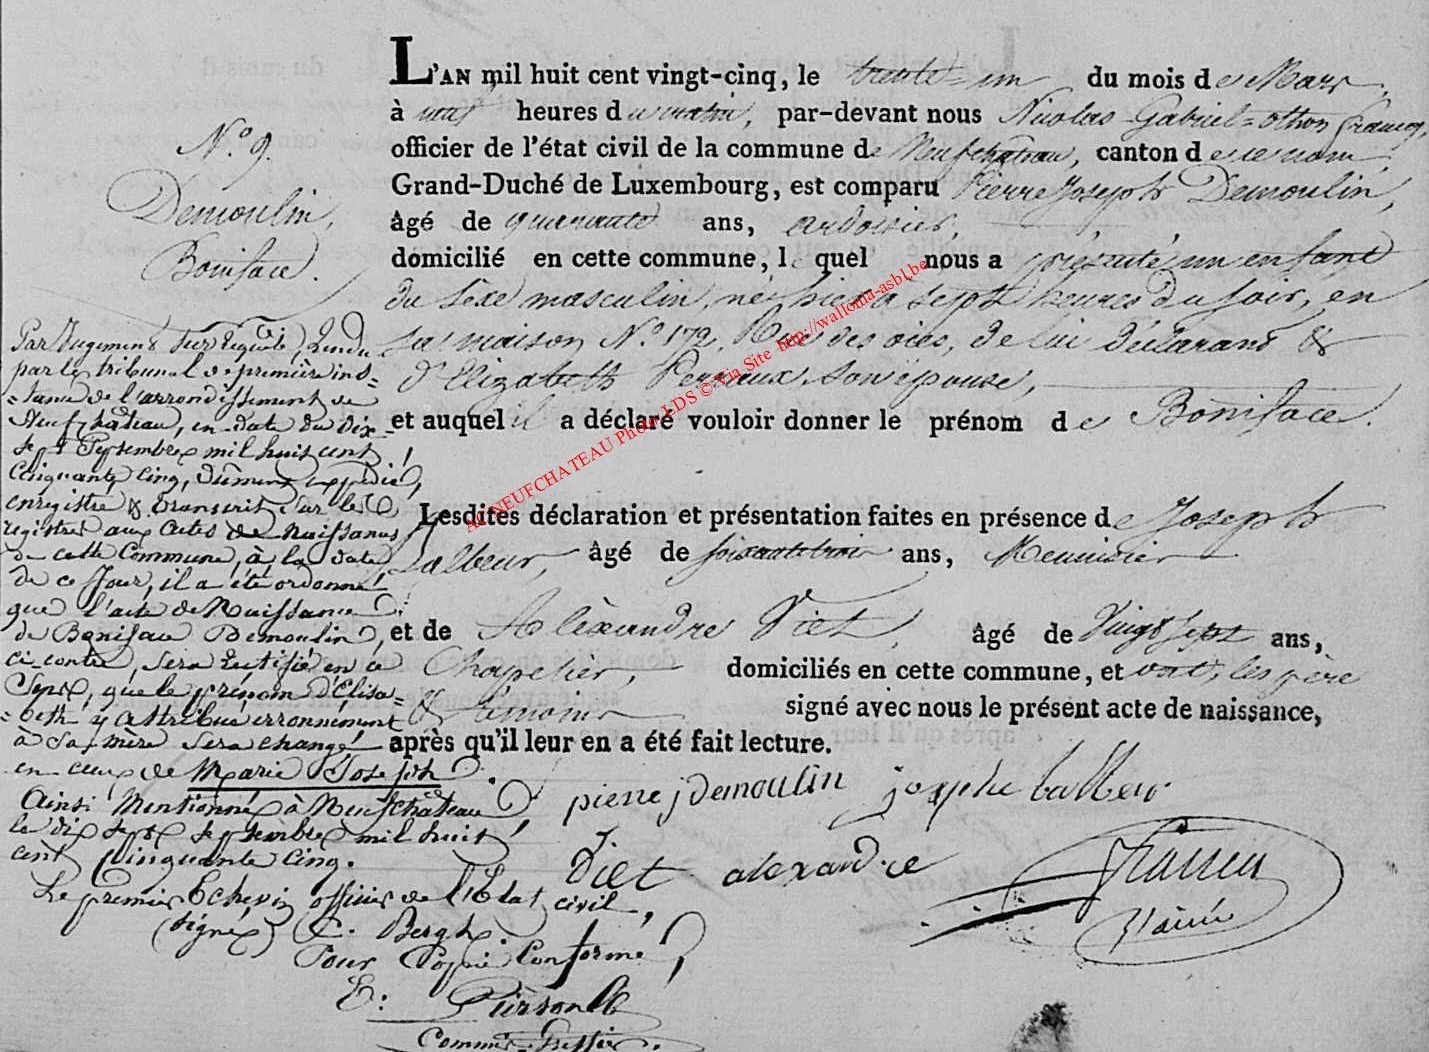 N.° 9.
Demoulin,
Boniface.
L'AN mil huit cent vingt-cinq, le trente-un du mois de Mars,
à neuf heures du matin, par-devant nous Nicolas-Gabriel-Othon
officier de l'état civil de la commune de Neufchâteau, canton de ce nom,
Grand-Duché de Luxembourg, est comparu Pierre Joseph Demoulin,
âgé de quarante ans, ardoisier,
domicilié en cette commune, lequel nous a présenté un enfant
du sexe masculin, né hier à sept heures du soir, en
sa maison N.° 172, Rue des oies, de lui déclarant &
d'Elizabeth son épouse,
et auquel il a déclaré vouloir donner le prénom de Boniface.
Lesdites déclaration et présentation faites en présence de Joseph
Lalbeur, âgé de soixante trois ans, Menuisier
et de Alèxandre Diet, âgé de Vingt sept ans,
Chapelier, domiciliés en cette commune, et ont, les père
& témoins signé avec nous le présent acte de naissance,
après qu'il leur en a été fait lecture.
pierre j Demoulin josephe lalbeur
Diet alexandre
Par Jugement sur requête, Rendu
par le tribunal de première ins=
=tance de l'arrondissement de
Neufchâteau, en date du dix-
sept Septembre mil huit cent
Cinquante Cinq, dûment expédié,
enregistré & transcrit sur les
registres aux actes de Naissances
de cette Commune, à la date
de ce Jour, il a été ordonné
que l'acte de Naissance
de Boniface Demoulin,
ci-contre, sera Rectifié en ce
Sens, que le prénom d'Elisa=
=beth y attribué erronnément
à sa mère sera changé
en ceux de Marie Joseph.
Ainsi Mentionné à Neufchâteau,
le dix sept septembre mil huit
cent Cinquante Cinq.
Le premier Echevin officier de l'Etat civil,
(signé) C. Bergh.
Pour Copie Conforme,
Commis-Greffier.
AC NEUFCHATEAU Photo LDS © Via Site http://wallonia-asbl.be